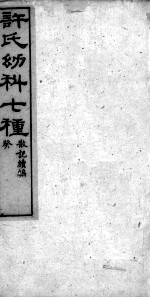 許氏幼科七種
散記續編
癸